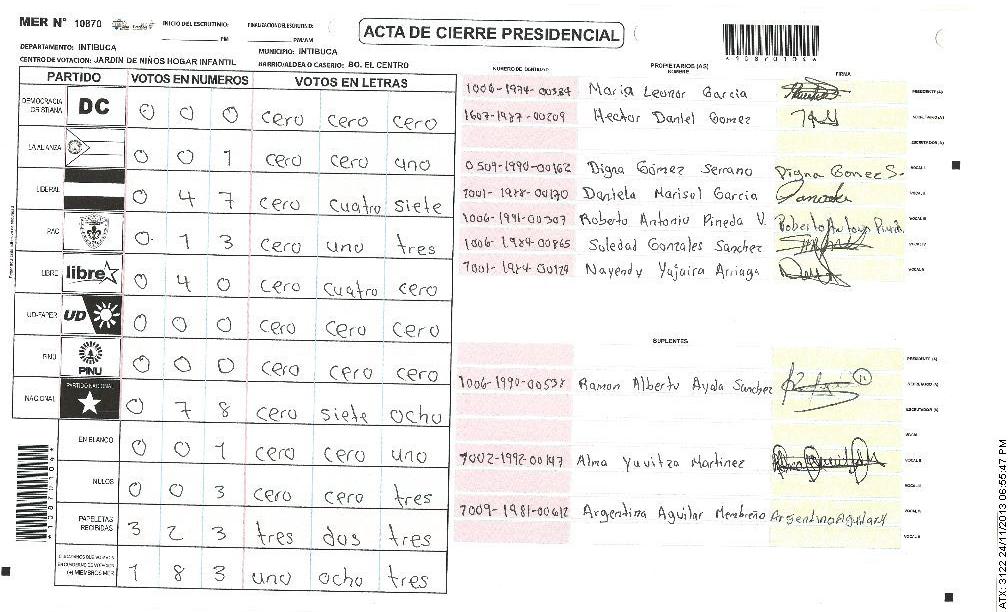 MER N° 10870
INICIO DEL ESCRUTINIO:
PM
FINALIZACION DEL ESCRUTINIO:
PM/AM
ACTA DE CIERRE PRESIDENCIAL
DEPARTAMENTO: INTIBUCA
MUNICIPIO: INTIBUCA
CENTRO DE VOTACION: JARDIN DE NIÑOS HOGAR INFANTIL
BARRIO/ALDEA O CASERIO: BO. EL CENTRO
PARTIDO VOTOS EN NUMEROS VOTOS EN LETRAS
DEMOCRACIA CRISTIANA DC 0 0 0 cero cero cero
LA ALIANZA 0 0 1 cero cero uno
LIBERAL 0 4 7 cero cuatro siete
PAC 0 1 3 cero uno tres
LIBRE libre 0 4 0 cero cuatro cero
UD-FAPER UD 0 0 0 cero cero cero
PINU PINU 0 0 0 cero cero cero
NACIONAL PARTIDO NACIONAL 0 7 8 cero siete ocho
EN BLANCO 0 0 1 cero cero uno
NULOS 0 0 3 cero cero tres
PAPELETAS RECIBIDAS 3 2 3 tres dos tres
(+) MIEMBROS MER 1 8 3 uno ocho tres
NUMERO DE IDENTIDAD
PROPIETARIOS (AS)
NOMBRE
FIRMA
1006-1974-00384 Maria Leonor Garcia PRESIDENTE (A)
1607-1987-00209 Hector Daniel Gomez SECRETARIO (A)
ESCRUTADOR (A)
0509-1990-00162 Digna Gómez Serrano Digna Gomez S. VOCAL I
1001-1988-00170 Daniela Marisol Garcia VOCAL II
1006-1991-00307 Roberto Antonio Pineda V. VOCAL III
1006-1984-00865 Soledad Gonzales Sanchez VOCAL IV
1001-1984-00129 Nayendy Yajaira Arriaga VOCAL V
SUPLENTES
PRESIDENTE (A)
1006-1990-00538 Ramon Alberto Ayala Sanchez SECRETARIO (A)
ESCRUTADOR (A)
VOCAL I
1002-1992-00147 Alma Yuvitza Martinez VOCAL II
VOCAL III
1009-1981-00612 Argentina Aguilar Membreño Argentina Aguilar M VOCAL IV
VOCAL V
*10870104*
ATX: 3122 24/11/2013 06:55:47 PM